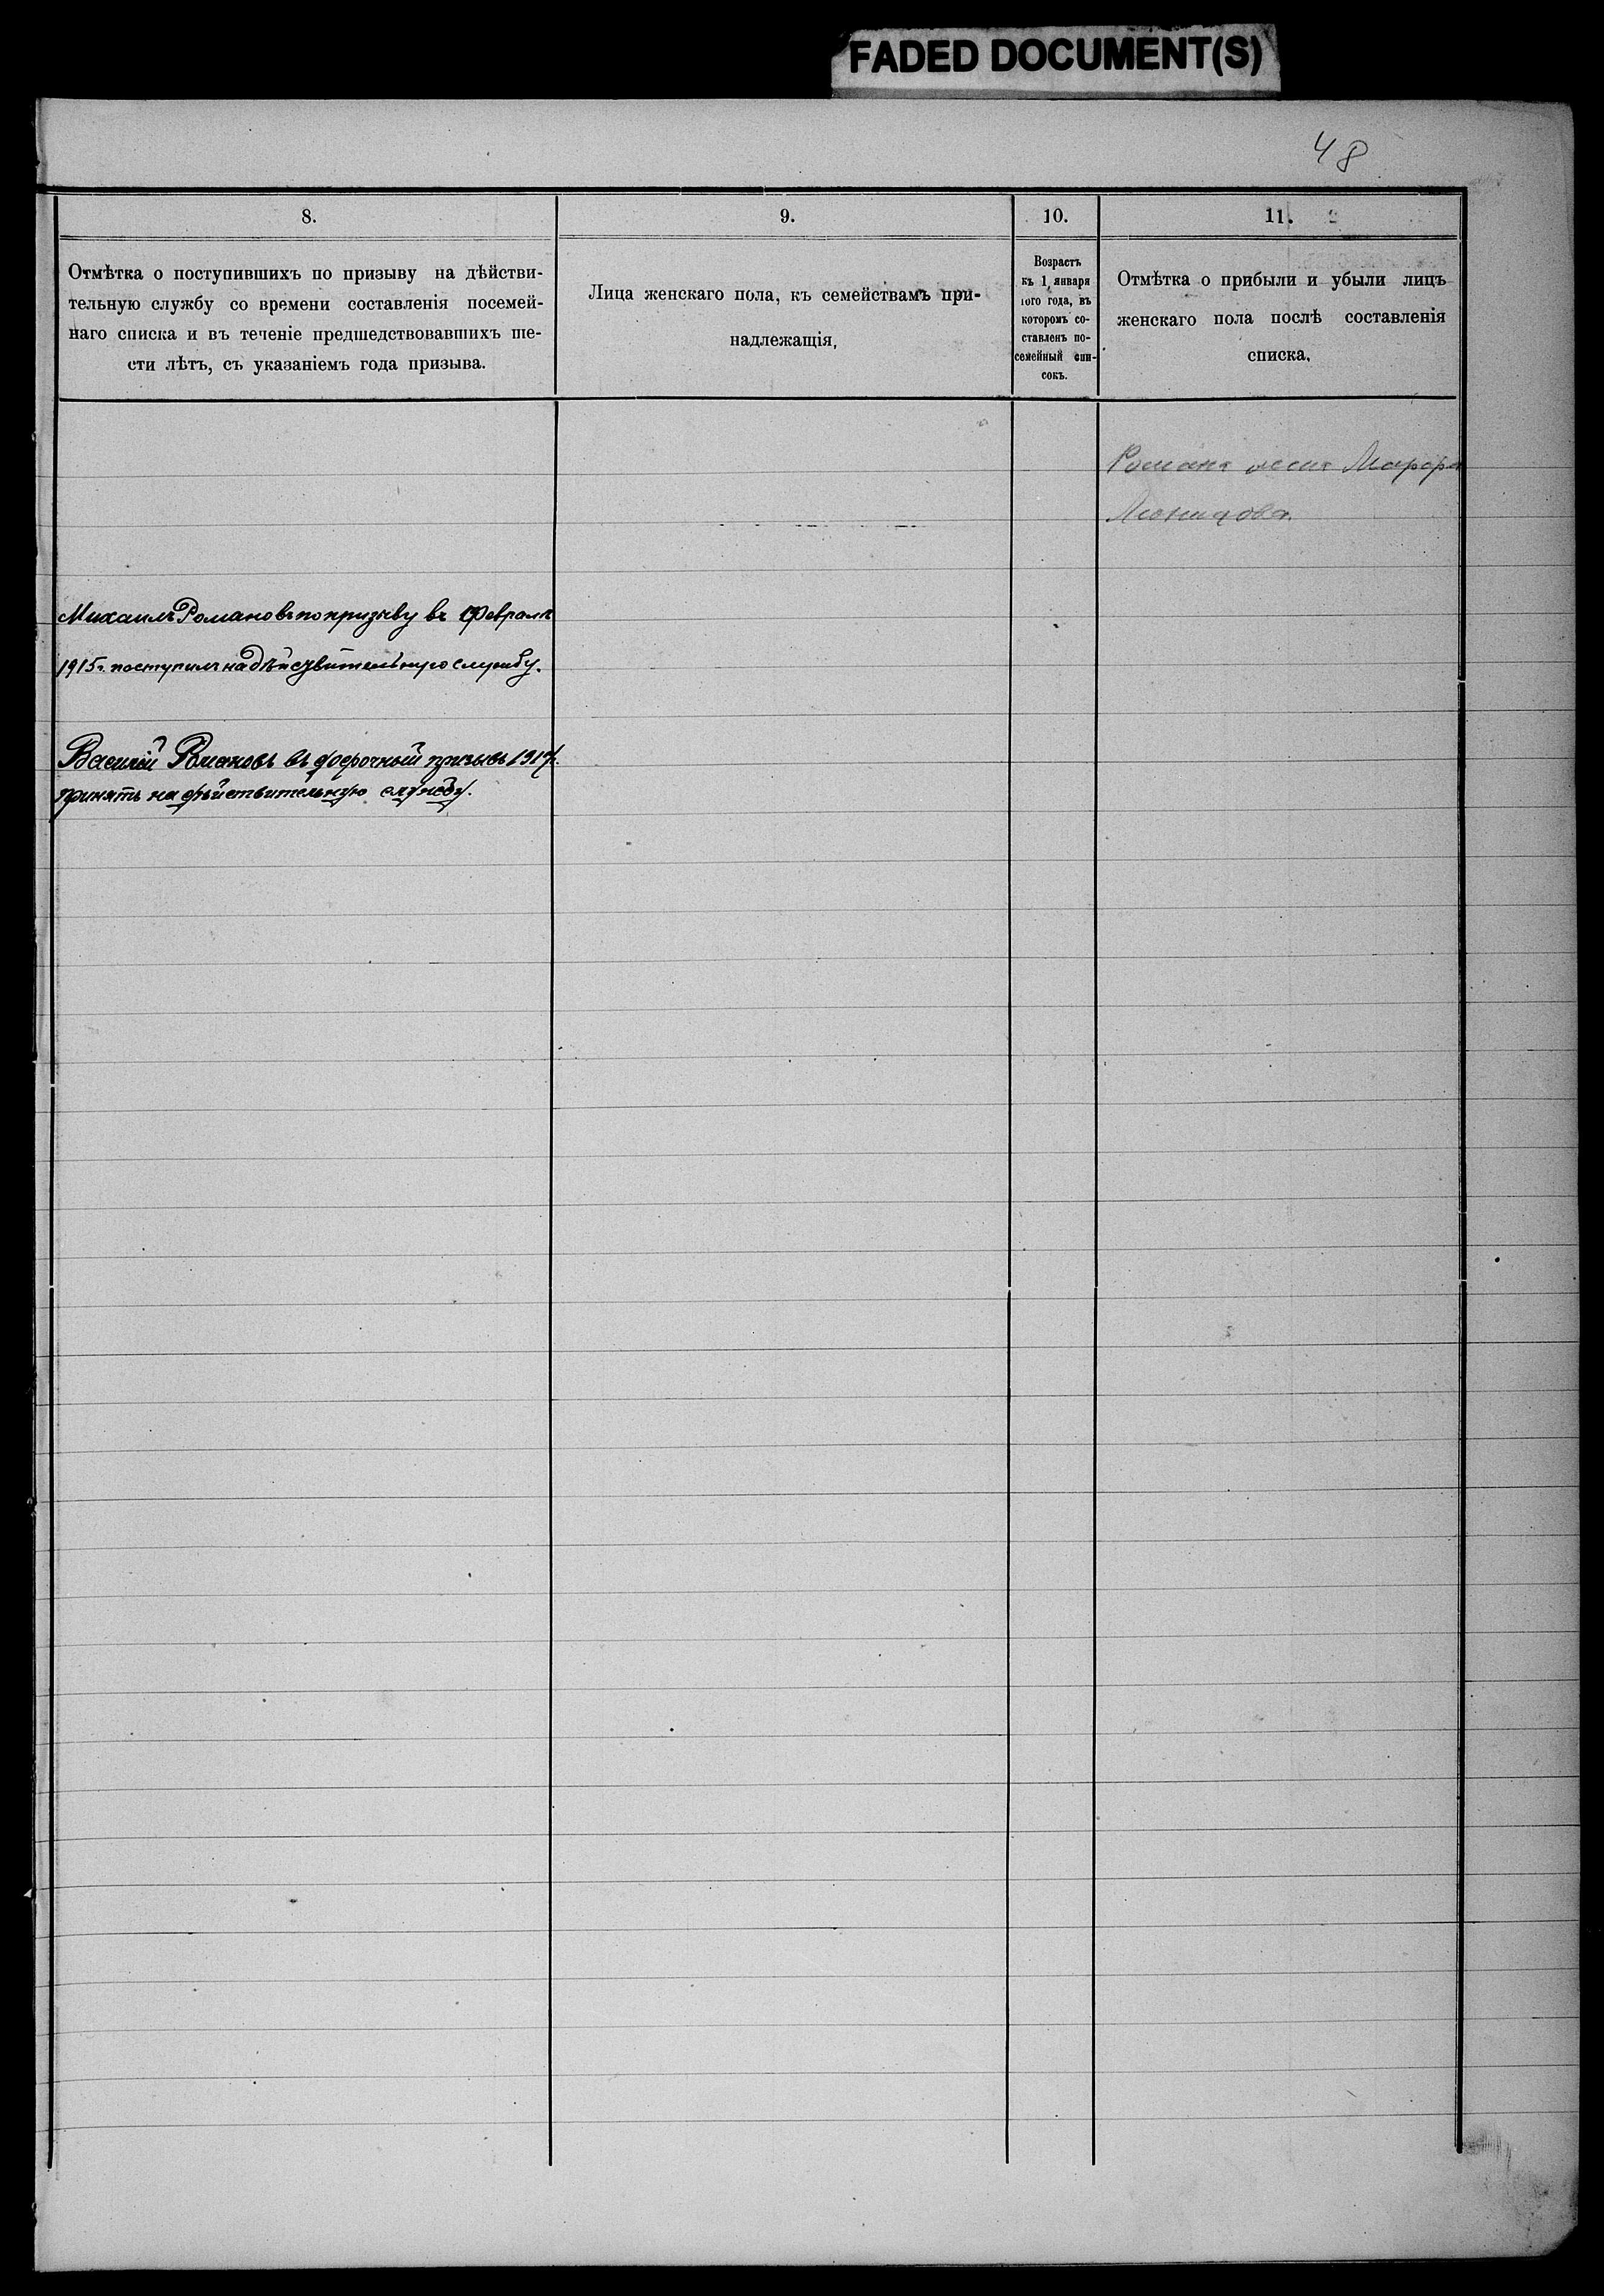 FADED DOCUMENT(S)
48
8.
Отмѣтка о поступившихъ по призыву на дѣйстви-
тельную службу со времени составленія посемей-
наго списка и въ теченіе предшедствовавшихъ ше-
сти лѣтъ, съ указаніемъ года призыва.
9.
Лица женскаго пола, къ семействамъ при-
надлежащія,
10.
Возрастъ
къ 1 января
того года, въ
которомъ со-
ставленъ по-
семейный спи-
сокъ.
11.
Отмѣтка о прибыли и убыли лицъ
женскаго пола послѣ составленія
списка.
Романа жена Марфа
Михаилъ Романовъ по призыву въ Февралѣ
1915г. поступилъ на дѣйствительную службу.
Василій Романовъ въ досрочный призывъ 1917г.
принятъ на дѣйствительную службу.